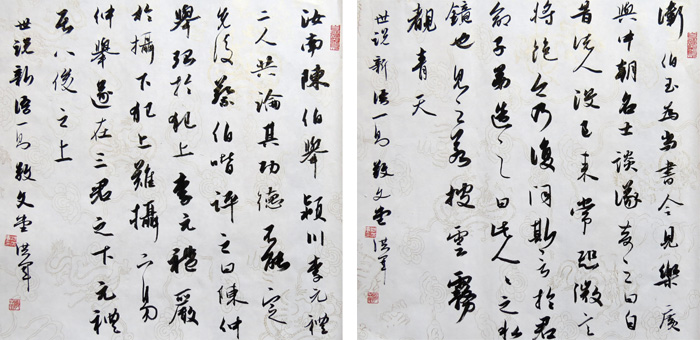 衛伯玉為尚書令見樂廣
與中朝名士談議奇之曰自
昔諸人沒已來常恐微言
將絕今乃復聞斯言於君
命子弟造之曰此人人之水
鏡也見之若披雲霧
覩青天
世説新語一則 敬文堂 洪軍
汝南陳伯舉潁川李元禮
二人共論其功德不能定
先後蔡伯喈評之曰陳仲
舉强於犯上李元禮嚴
於攝下犯上難攝下易
仲舉遂在三君之下元禮
居八俊之上
世説新語一則 敬文堂 洪軍